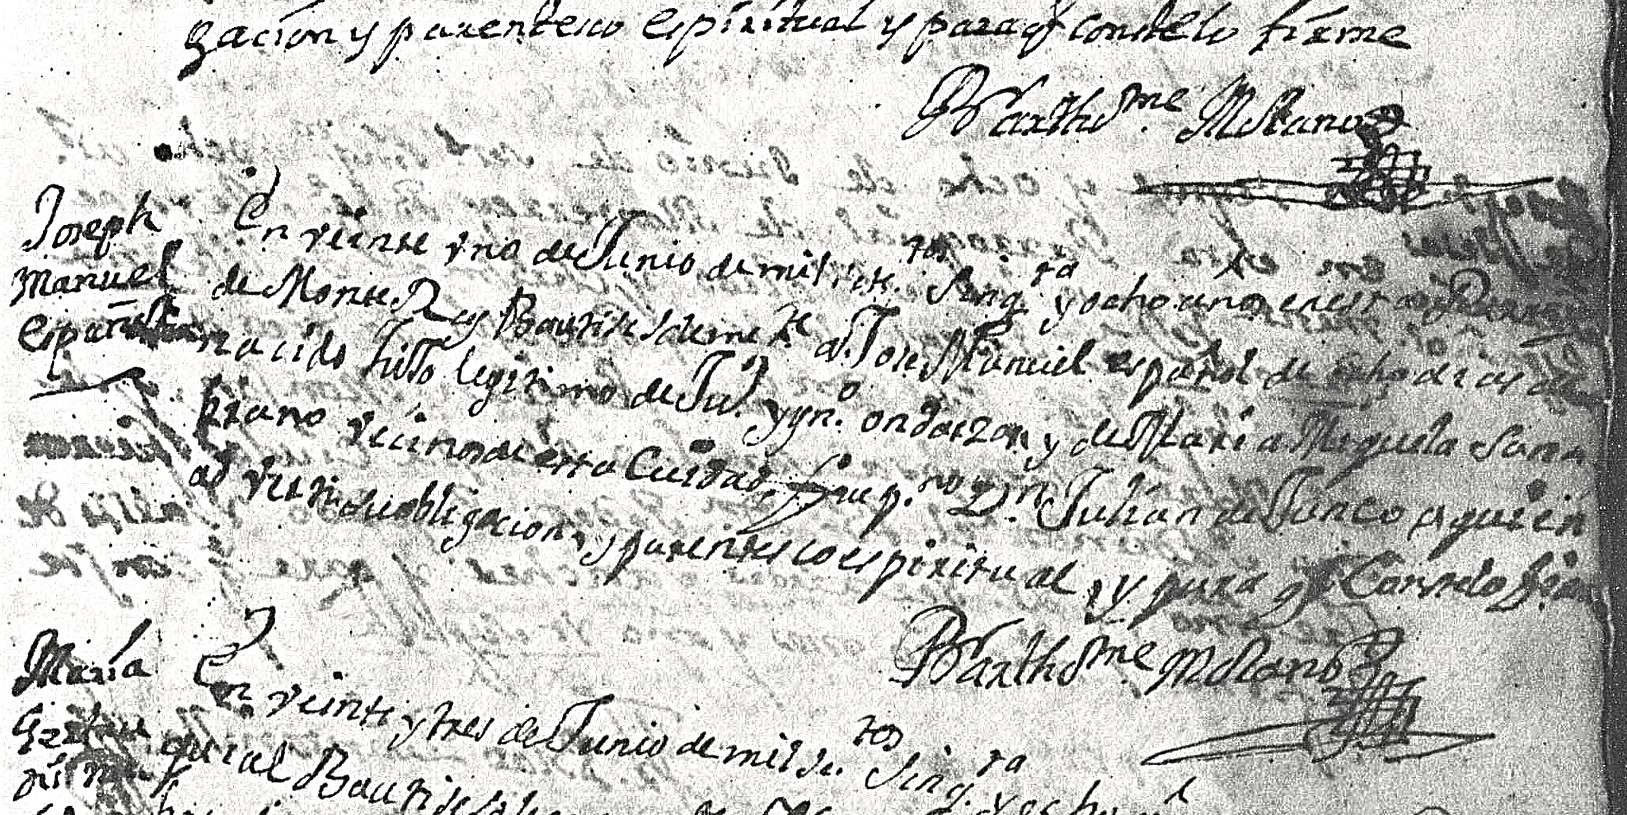 gacion y parentesco espiritual y para q.e conste lo firme
Barthõ.me Molano
Joseph
Manuel
español
En veinte y uno de Junio de mil sete.tos sinq.ta y ocho anos en esta Yg.a Parro
de Monte Rey Bautise solemne.te a Jose Manuel español de ocho dias de
nacido hijo legitimo de Ju.o Ygn.o ondarza y de Maria Miguela Sana
bria vecinos de esta Cuidad, fue p.no D.n Julian de Junco a quien
adverti su obligacion, y parentesco espiritual, y para q.e Conste lo firme
Barthõ.me Molano
Maria
Gertru
dis
En veinte y tres de Junio de mil se.tos sinq.ta y ocho
quial Bautise solem